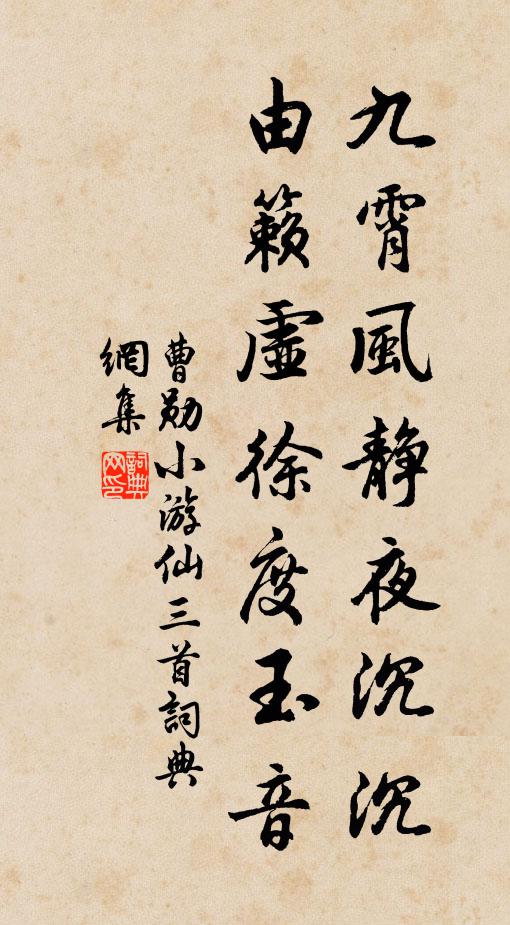 九霄風静夜沉沉
由籟虛徐度玉音
曹勛小游仙三首詞典
網集
詞典網印